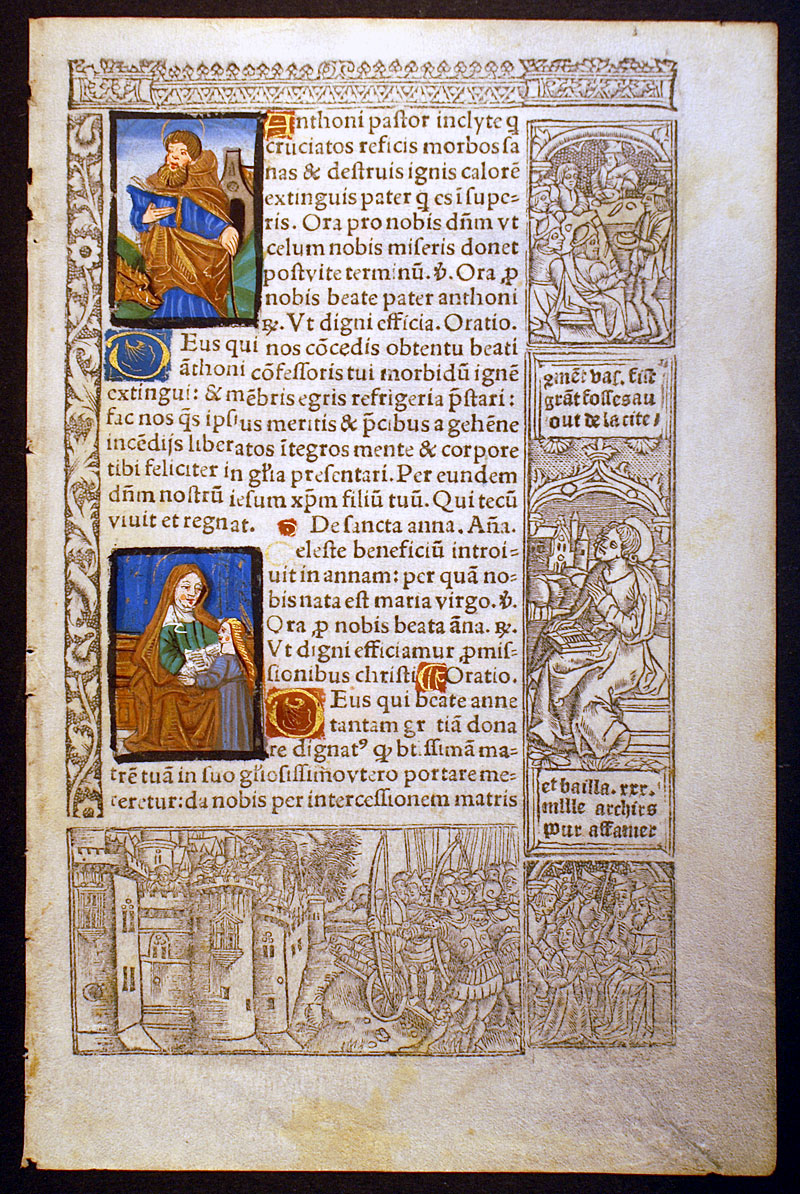 Anthoni pastor inclyte q̄
cruciatos reficis morbos ſa
nas & deſtruis ignis calorē
extinguis pater q̄ es ī ſupe⸗
ris. Ora pro nobis dn̄m vt
celum nobis miſeris donet
poſt vite terminū. ℣. Ora ꝓ
nobis beate pater anthoni
℞. Vt digni efficia. Oratio.
DEus qui nos cōcedis obtentu beati
āthoni cōfeſſoris tui morbidū ignē
extingui: & mēbris egris refrigeria p̄ſtari:
fac nos q̄s ipſius meritis & p̄cibus a gehēne
incēdijs liberatos ītegros mente & corpore
tibi feliciter in gl̄ia preſentari. Per eundem
dn̄m noſtrū ieſum xp̄m filiū tuū. Qui tecū
viuit et regnat. De ſancta anna. Añа.
Celeſte beneficiū introi⸗
uit in annam: per quā no⸗
bis nata eſt maria virgo. ℣.
Ora ꝓ nobis beata āna. ℞.
Vt digni efficiamur ꝓmiſ⸗
ſionibus chriſti Oratio.
DEus qui beate anne
tantam gr tiā dona
re dignatꝰ qͥ bt.ſſimā ma⸗
trē tuā in ſuo gl̄ioſiſſimo vtero portare me⸗
reretur: da nobis per interceſſionem matris
gment vaſ. Fiſt
grāt foſſes au
out de la cite/
et bailla. xxx.
mille archirs
pour affamer